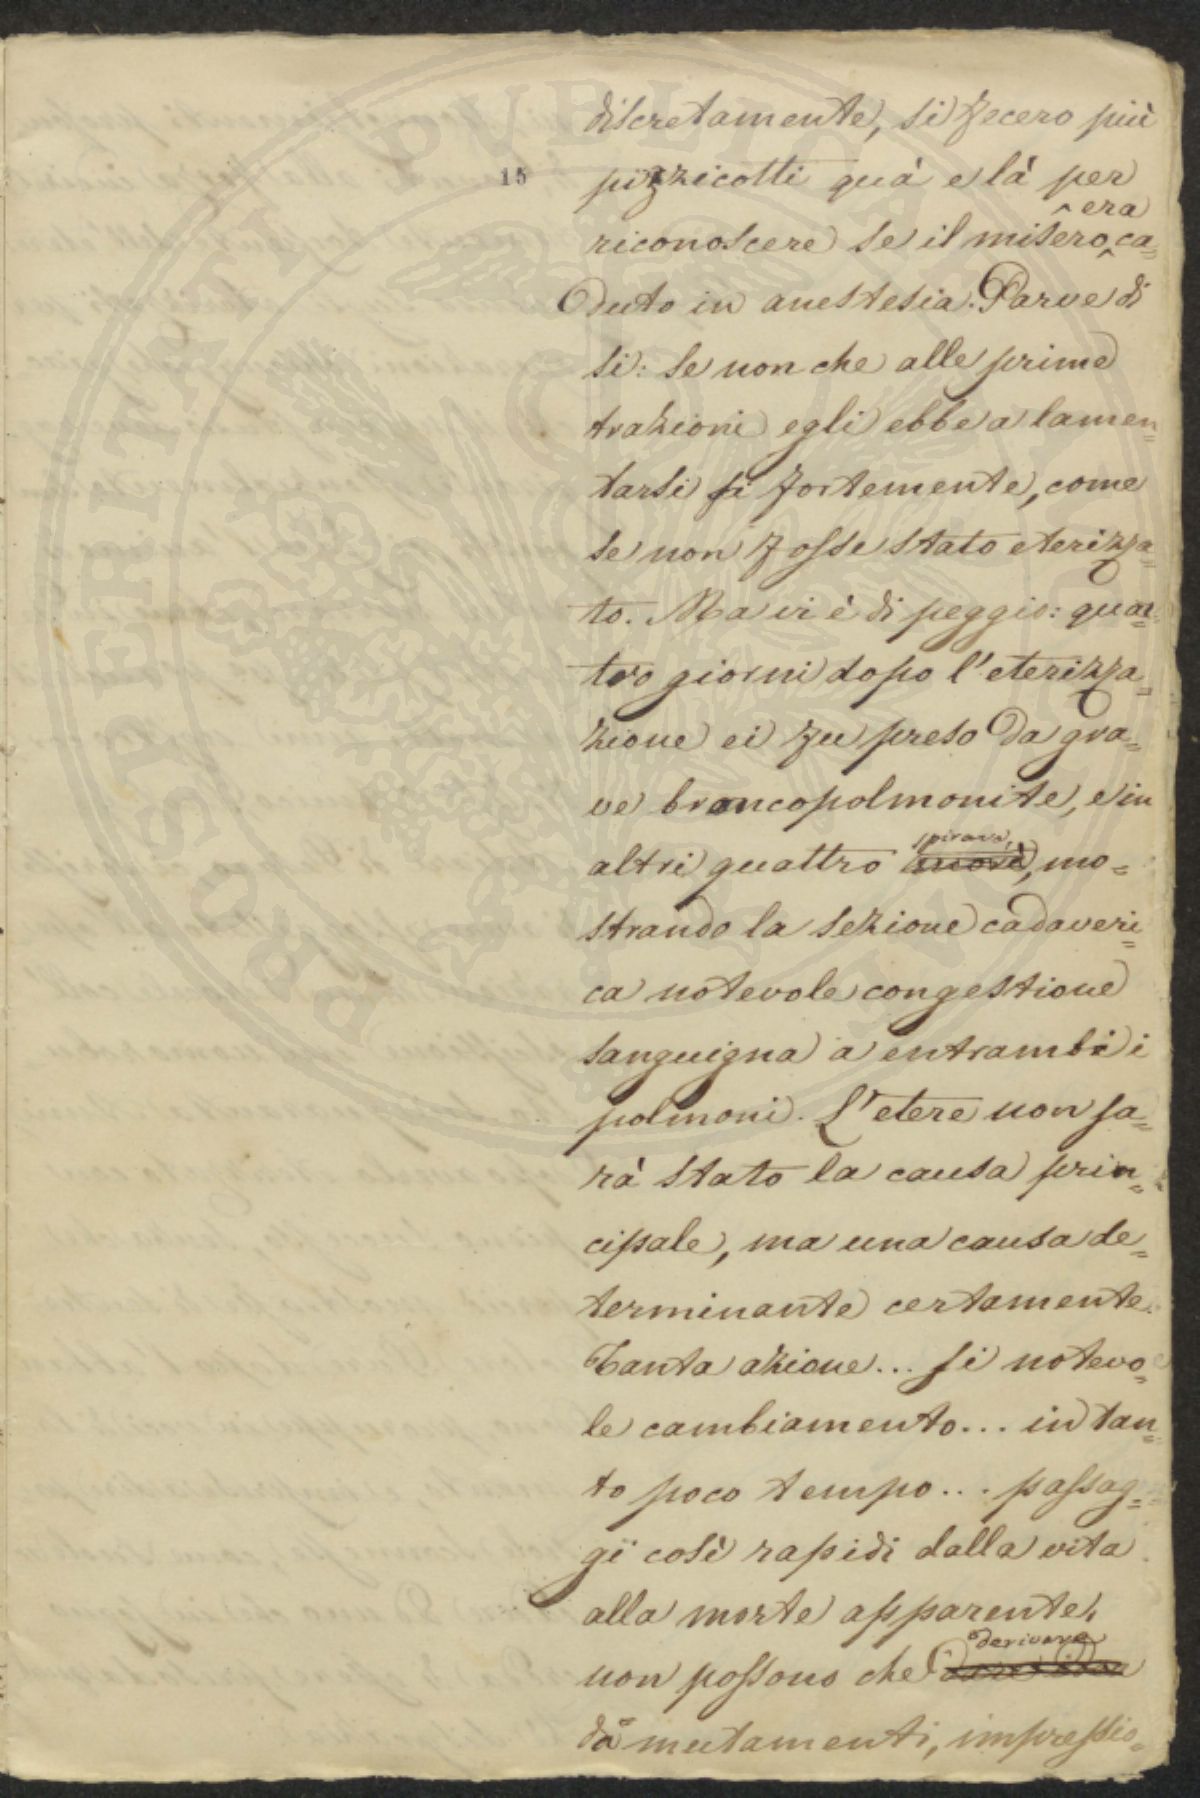 PROSPERITATI PUBLICAE
discretamente, si fecero più
15
pizzicotti quà e là per
riconoscere se il misero ^era ca=
duto in anestesia. Parve di
si: se non che alle prime
trazioni egli ebbe a lamen=
tarsi si fortemente, come
se non fosse stato eterizza=
to. Ma vi è di peggio: quat=
tro giorni dopo l'eterizza=
zione ei fu preso da gra=
ve broncopolmonite, e in
spirava,
altri quattro morì, mo=
strando la sezione cadaveri=
ca notevole congestione
sanguigna a entrambi i
polmoni. L'etere non sa=
rà stato la causa prin=
cipale, ma una causa de=
terminante certamente.
Tanta azione... si notevo=
le cambiamento... in tan=
to poco tempo... passag=
gi così rapidi dalla vita
alla morte apparente,
derivare
non possono che
da mutamenti, impressio=